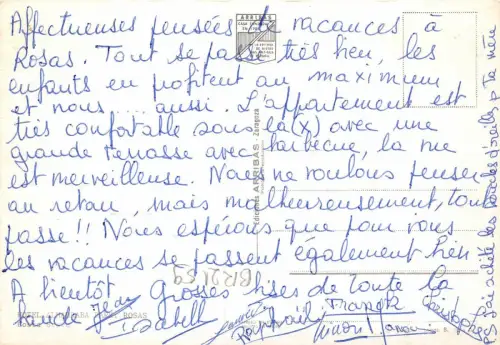 Affectueuses pensées de vacances à
Rosas. Tout se passe très bien, les
enfants en profitent au maximum
et nous ... aussi. L'appartement est
très confortable sous la(x) avec une
grande terrasse avec barbecue, la vue
est merveilleuse. Nous ne voulons penser
au retour, mais malheureusement, tout
passe!! Nous espérons que pour vous
les vacances se passent également bien.
A bientôt Grosses bises de toute la
bande
Isabelle
Raphaël
Franck
Christophe
J'ai acheté des boucles d'oreilles p Ta mère
ARRIBAS
Ediciones ARRIBAS - Zaragoza
ROSAS